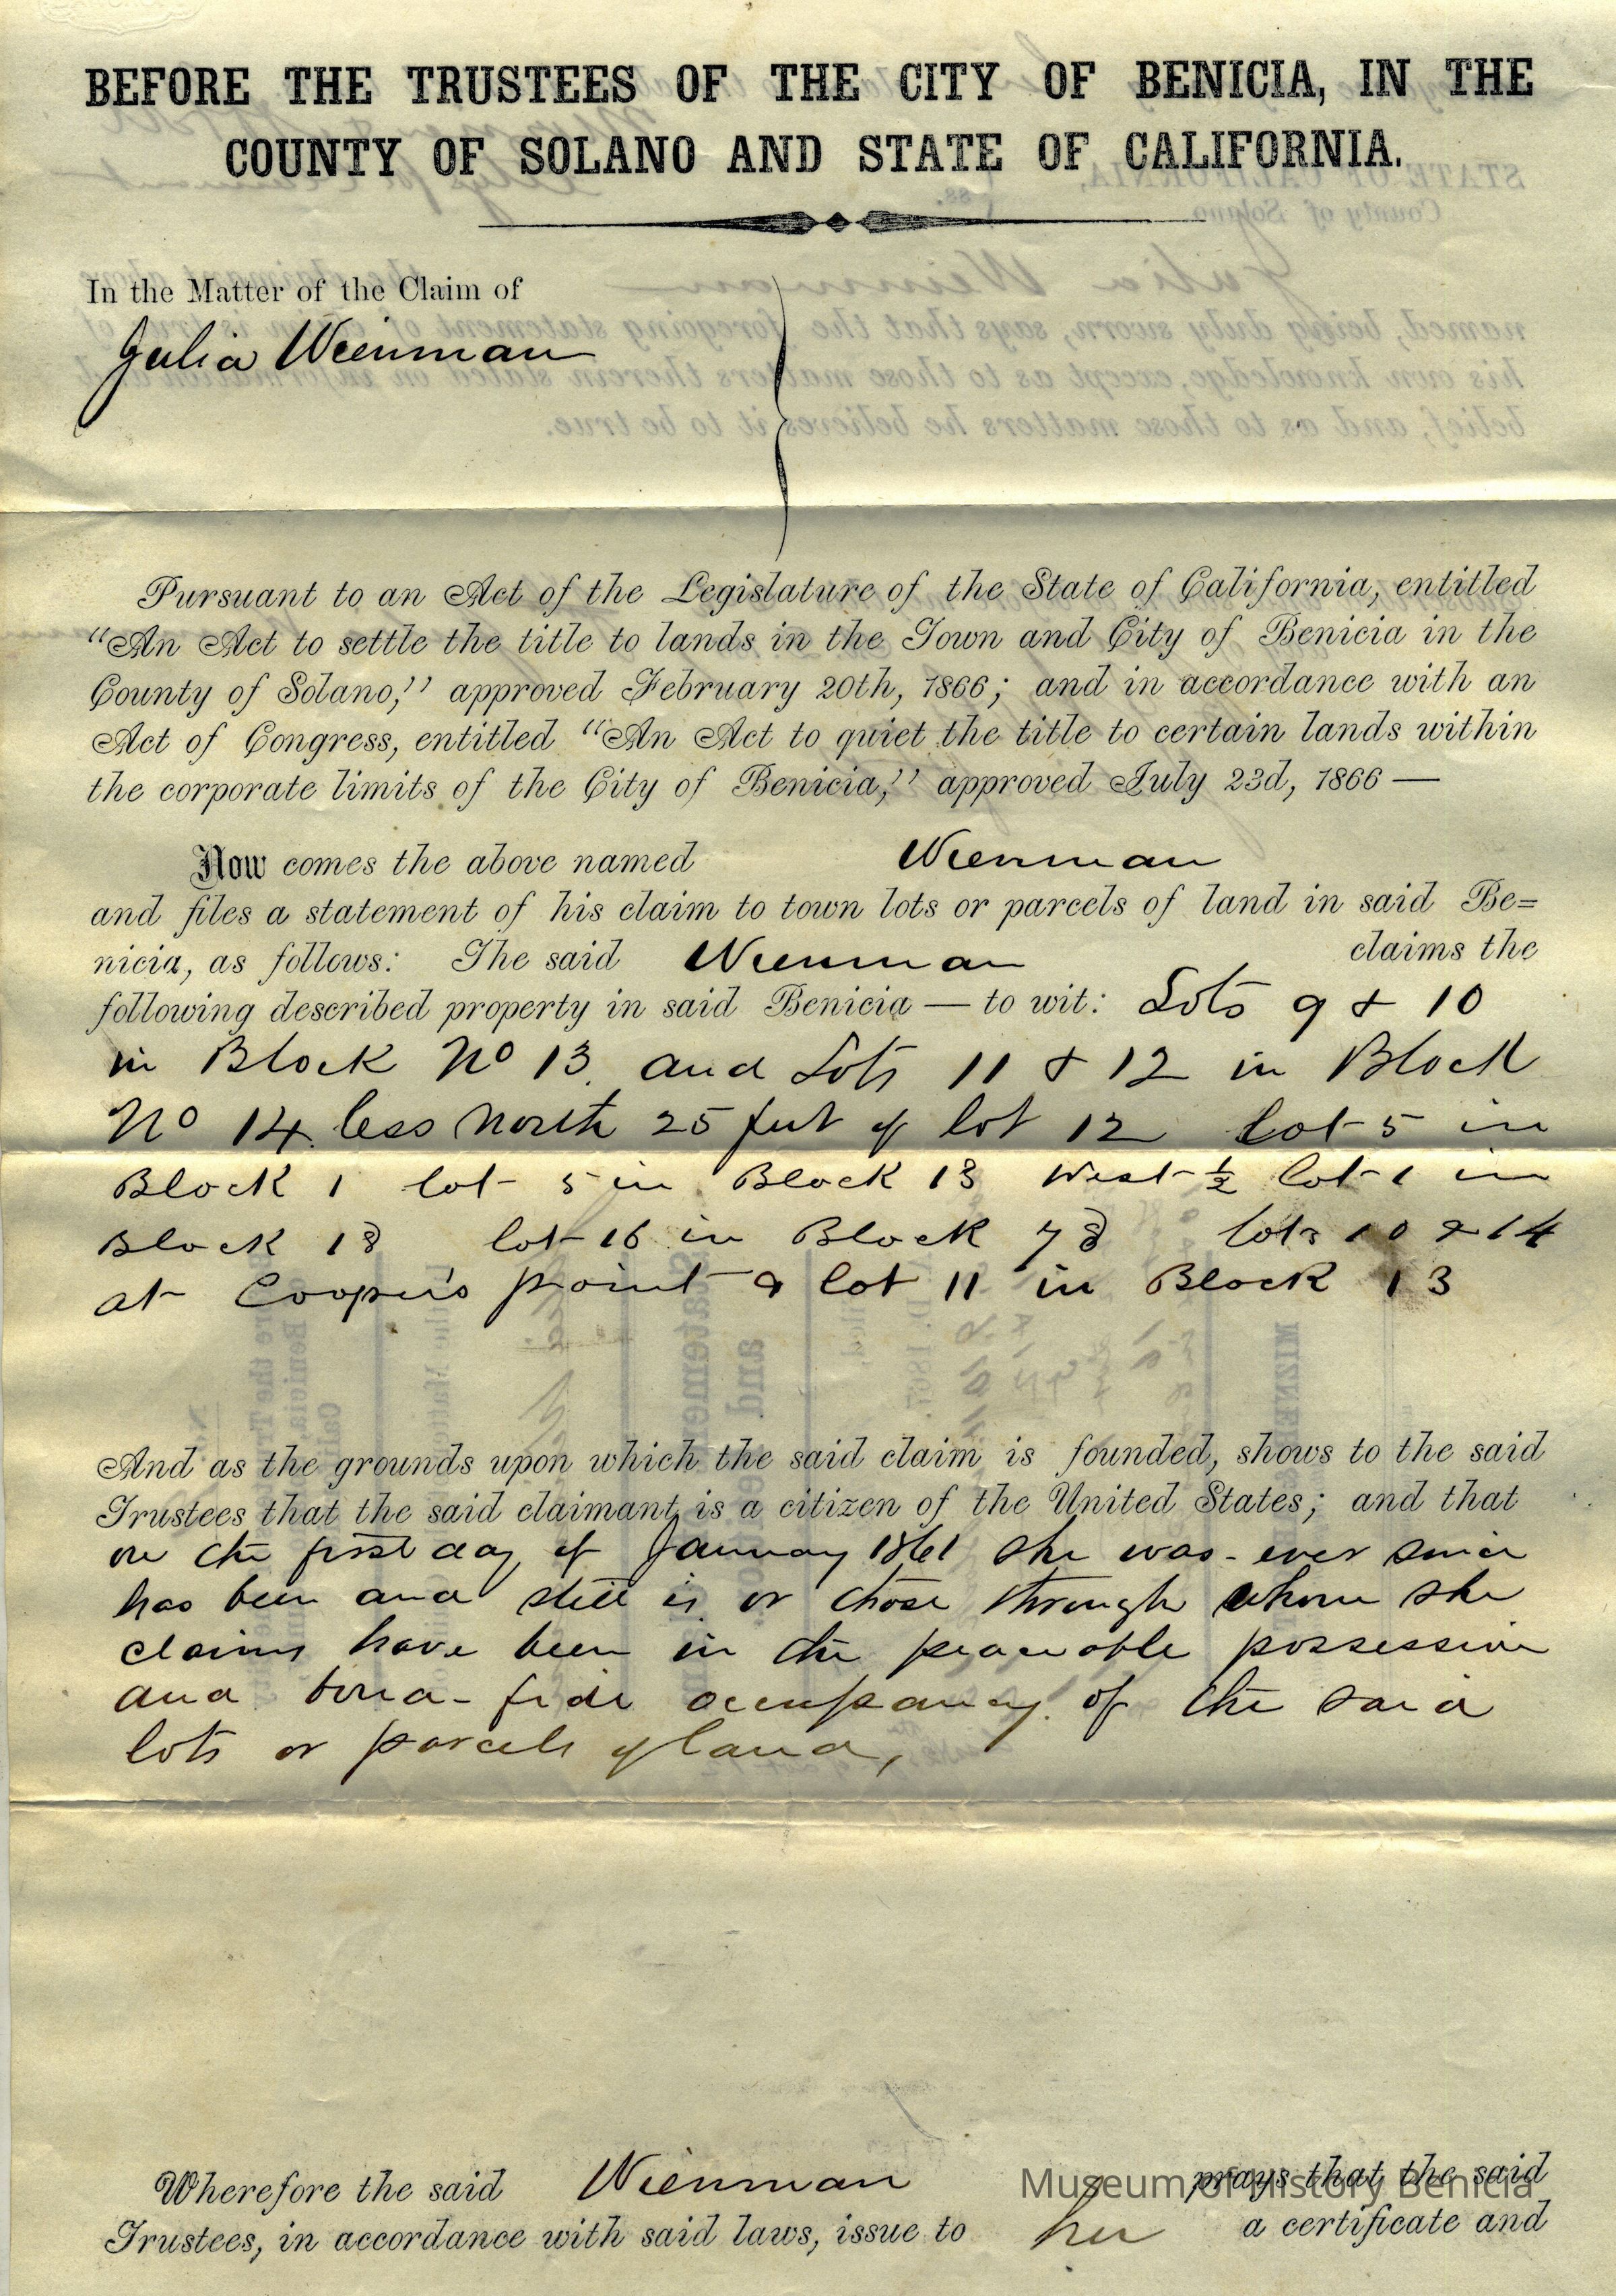 BEFORE THE TRUSTEES OF THE CITY OF BENICIA, IN THE
COUNTY OF SOLANO AND STATE OF CALIFORNIA.
In the Matter of the Claim of
Julia Weinman
Pursuant to an Act of the Legislature of the State of California, entitled
"An Act to settle the title to lands in the Town and City of Benicia in the
County of Solano," approved February 20th, 1866; and in accordance with an
Act of Congress, entitled "An Act to quiet the title to certain lands within
the corporate limits of the City of Benicia," approved July 23d, 1866—
Now comes the above named Wienman
and files a statement of his claim to town lots or parcels of land in said Be=
nicia, as follows: The said Wienman claims the
following described property in said Benicia — to wit: Lots 9 & 10
in Block No 13 and Lots 11 & 12 in Block
No 14 less North 25 feet of lot 12 Lot 5 in
Block 1 lot 5 in Block 13 West ½ lot 1 in
Block 18 lot 16 in Block 78 lots 10 & 14
at Cooper's point & lot 11 in Block 13
And as the grounds upon which the said claim is founded, shows to the said
Trustees that the said claimant is a citizen of the United States; and that
on the first day of January 1861 she was - ever since
has been and still is or those through whom she
claims have been in the peaceable possession
and bona-fide occupancy of the said
lots or parcels of land,
Wherefore the said Wienman prays that the said
Trustees, in accordance with said laws, issue to her a certificate and
Museum of History Benicia